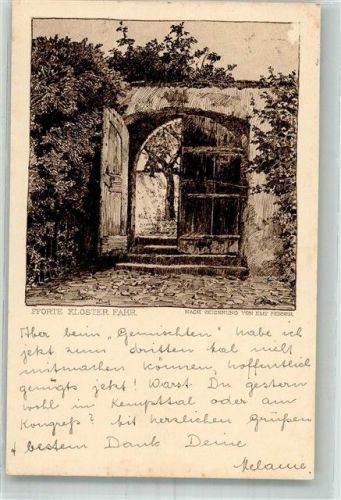 PFORTE KLOSTER FAHR.
NACH ZEICHNUNG VON EMY FENNER.
Aber beim „Gemischten" habe ich
jetzt zum dritten Mal nicht
mitmachen können, hoffentlich
genügts jetzt! Warst Du gestern
wohl in Kempttal oder am
Kongreß? Mit herzlichen Grüßen
+ bestem Dank Deine
Melanie.